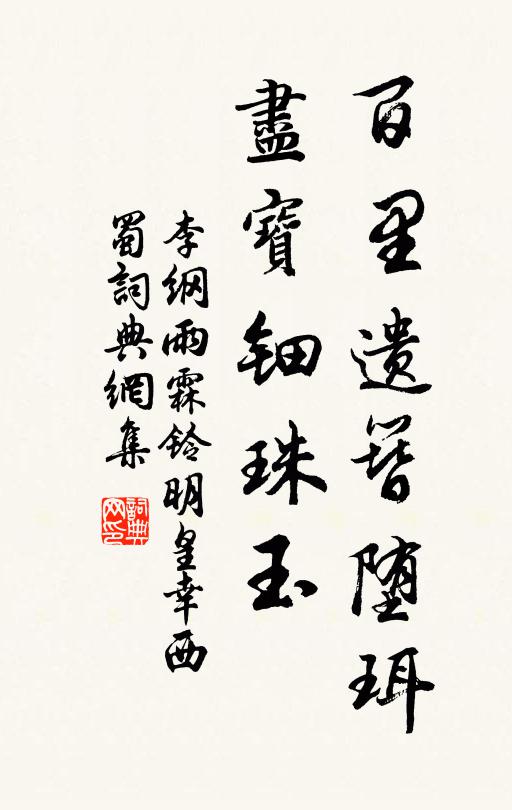 百里遺簪堕珥
盡寶鈿珠玉
李綱雨霖鈴明皇幸西
蜀詞典網集
詞典
网印